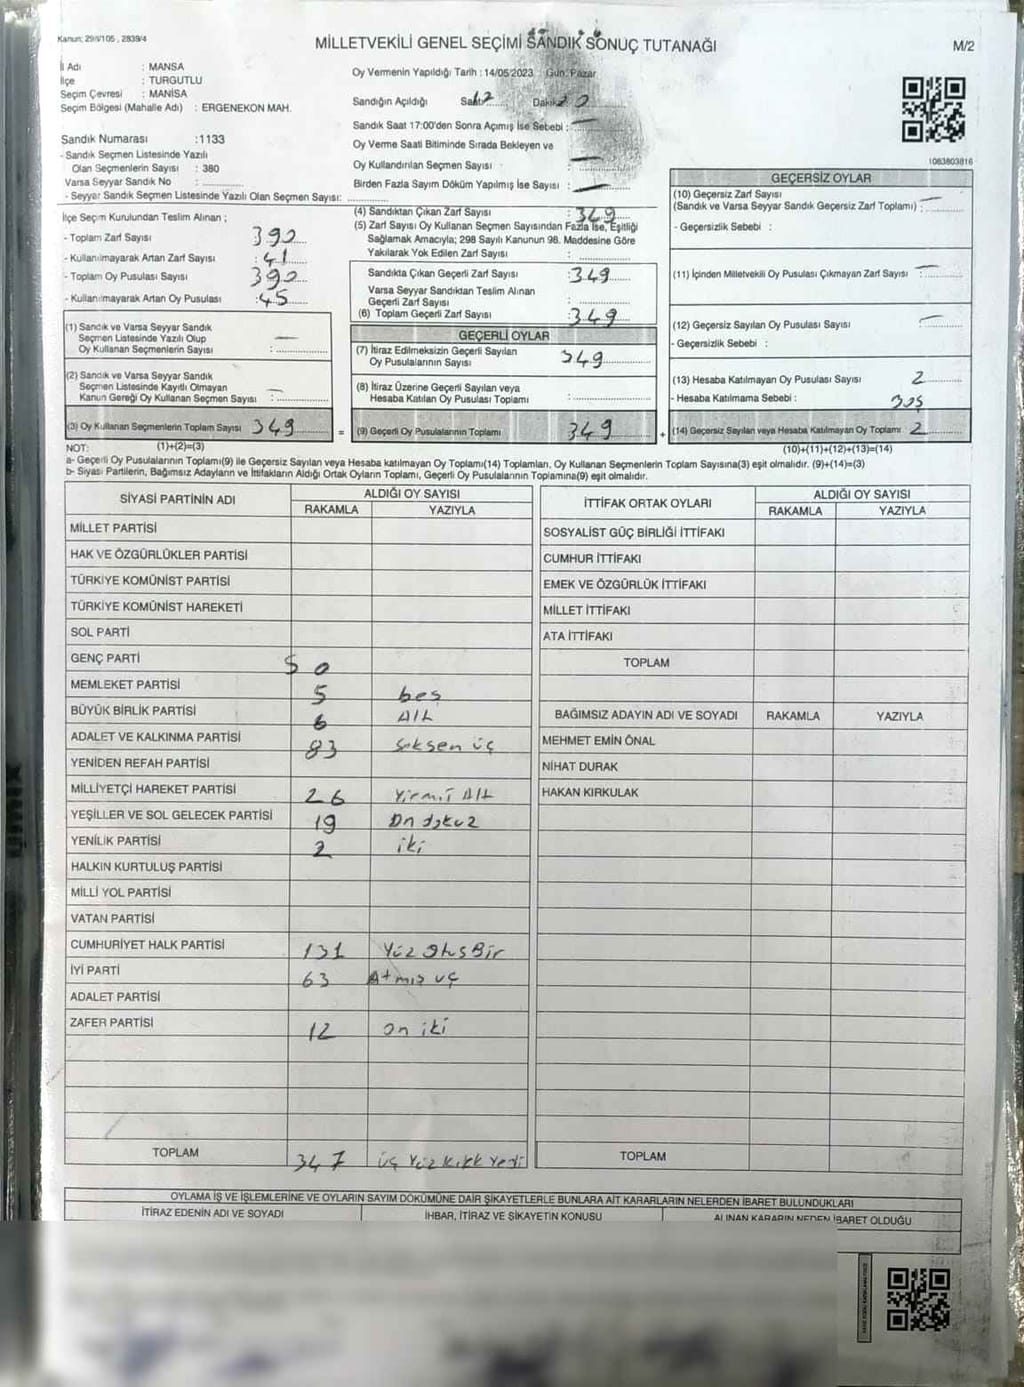 Kanun: 298/105, 2839/4
MİLLETVEKİLİ GENEL SEÇİMİ SANDIK SONUÇ TUTANAĞI
M/2
İl Adı : MANSA
İlçe : TURGUTLU
Seçim Çevresi : MANİSA
Seçim Bölgesi (Mahalle Adı) : ERGENEKON MAH.
Sandık Numarası :1133
- Sandık Seçmen Listesinde Yazılı
Olan Seçmenlerin Sayısı : 380
Varsa Seyyar Sandık No :
- Seyyar Sandık Seçmen Listesinde Yazılı Olan Seçmen Sayısı:
Oy Vermenin Yapıldığı Tarih : 14/05/2023 Gün: Pazar
Sandığın Açıldığı Saat Dakika
Sandık Saat 17:00'den Sonra Açımış İse Sebebi :
Oy Verme Saati Bitiminde Sırada Bekleyen ve
Oy Kullandırılan Seçmen Sayısı :
Birden Fazla Sayım Döküm Yapılmış İse Sayısı :
1063803816
İlçe Seçim Kurulundan Teslim Alınan ;
- Toplam Zarf Sayısı 390
- Kullanılmayarak Artan Zarf Sayısı : 41
- Toplam Oy Pusulası Sayısı 390
- Kullanılmayarak Artan Oy Pusulası : 45
(1) Sandık ve Varsa Seyyar Sandık
Seçmen Listesinde Yazılı Olup
Oy Kullanan Seçmenlerin Sayısı :
(2) Sandık ve Varsa Seyyar Sandık
Seçmen Listesinde Kayıtlı Olmayan
Kanun Gereği Oy Kullanan Seçmen Sayısı :
(3) Oy Kullanan Seçmenlerin Toplam Sayısı 349
(4) Sandıktan Çıkan Zarf Sayısı : 349
(5) Zarf Sayısı Oy Kullanan Seçmen Sayısından Fazla İse, Eşitliği
Sağlamak Amacıyla; 298 Sayılı Kanunun 98. Maddesine Göre
Yakılarak Yok Edilen Zarf Sayısı :
Sandıkta Çıkan Geçerli Zarf Sayısı : 349
Varsa Seyyar Sandıktan Teslim Alınan
Geçerli Zarf Sayısı :
(6) Toplam Geçerli Zarf Sayısı : 349
GEÇERLİ OYLAR
(7) İtiraz Edilmeksizin Geçerli Sayılan
Oy Pusulalarının Sayısı 349
(8) İtiraz Üzerine Geçerli Sayılan veya
Hesaba Katılan Oy Pusulası Toplamı :
= (9) Geçerli Oy Pusulalarının Toplamı 349
GEÇERSİZ OYLAR
(10) Geçersiz Zarf Sayısı
(Sandık ve Varsa Seyyar Sandık Geçersiz Zarf Toplamı) :
- Geçersizlik Sebebi :
(11) İçinden Milletvekili Oy Pusulası Çıkmayan Zarf Sayısı :
(12) Geçersiz Sayılan Oy Pusulası Sayısı :
- Geçersizlik Sebebi :
(13) Hesaba Katılmayan Oy Pusulası Sayısı : 2
- Hesaba Katılmama Sebebi :
+ (14) Geçersiz Sayılan veya Hesaba Katılmayan Oy Toplamı 2
NOT: (1)+(2)=(3)
(10)+(11)+(12)+(13)=(14)
a- Geçerli Oy Pusulalarının Toplamı(9) ile Geçersiz Sayılan veya Hesaba katılmayan Oy Toplamı(14) Toplamları, Oy Kullanan Seçmenlerin Toplam Sayısına(3) eşit olmalıdır. (9)+(14)=(3)
b- Siyasi Partilerin, Bağımsız Adayların ve İttifakların Aldığı Ortak Oyların Toplamı, Geçerli Oy Pusulalarının Toplamına(9) eşit olmalıdır.
SİYASİ PARTİNİN ADI
ALDIĞI OY SAYISI
RAKAMLA YAZIYLA
MİLLET PARTİSİ
HAK VE ÖZGÜRLÜKLER PARTİSİ
TÜRKİYE KOMÜNİST PARTİSİ
TÜRKİYE KOMÜNİST HAREKETİ
SOL PARTİ
GENÇ PARTİ 0
MEMLEKET PARTİSİ 5 beş
BÜYÜK BİRLİK PARTİSİ 6 Altı
ADALET VE KALKINMA PARTİSİ 83 Seksen üç
YENİDEN REFAH PARTİSİ
MİLLİYETÇİ HAREKET PARTİSİ 26 Yirmi Altı
YEŞİLLER VE SOL GELECEK PARTİSİ 19 On dokuz
YENİLİK PARTİSİ 2 iki
HALKIN KURTULUŞ PARTİSİ
MİLLİ YOL PARTİSİ
VATAN PARTİSİ
CUMHURİYET HALK PARTİSİ 131 Yüz Otuz Bir
İYİ PARTİ 63 Atmış üç
ADALET PARTİSİ
ZAFER PARTİSİ 12 on iki
TOPLAM 347 üç Yüz Kırk Yedi
İTTİFAK ORTAK OYLARI
ALDIĞI OY SAYISI
RAKAMLA YAZIYLA
SOSYALİST GÜÇ BİRLİĞİ İTTİFAKI
CUMHUR İTTİFAKI
EMEK VE ÖZGÜRLÜK İTTİFAKI
MİLLET İTTİFAKI
ATA İTTİFAKI
TOPLAM
BAĞIMSIZ ADAYIN ADI VE SOYADI RAKAMLA YAZIYLA
MEHMET EMİN ÖNAL
NİHAT DURAK
HAKAN KIRKULAK
TOPLAM
OYLAMA İŞ VE İŞLEMLERİNE VE OYLARIN SAYIM DÖKÜMÜNE DAİR ŞİKAYETLERLE BUNLARA AİT KARARLARIN NELERDEN İBARET BULUNDUKLARI
İTİRAZ EDENİN ADI VE SOYADI
İHBAR, İTİRAZ VE ŞİKAYETİN KONUSU
ALINAN KARARIN NEDEN İBARET OLDUĞU